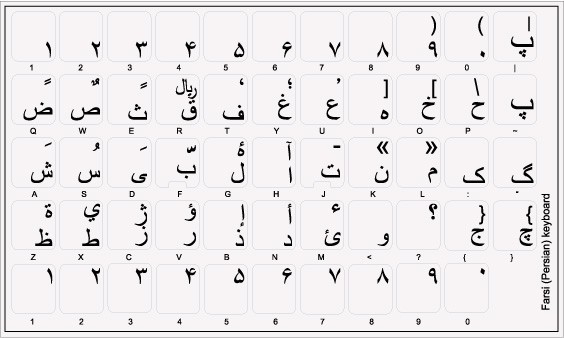 ) ( |
۱ ۲ ۳ ۴ ۵ ۶ ۷ ۸ ۹ ۰ پ
1 2 3 4 5 6 7 8 9 0 |
ریال ، ؛ ] [ \
ض ص ث ق ف غ ع ه خ ح پ
Q W E R T Y U I O P ~
ۀ آ - « »
ش س ی ب ل ا ت ن م ک گ
A S D F G H J K L : "
ة ي ژ ؤ إ أ ء ؟ } {
ظ ط ز ر ذ د ئ و ج چ
Z X C V B N M < ? { }
۱ ۲ ۳ ۴ ۵ ۶ ۷ ۸ ۹ ۰
1 2 3 4 5 6 7 8 9 0
Farsi (Persian) keyboard